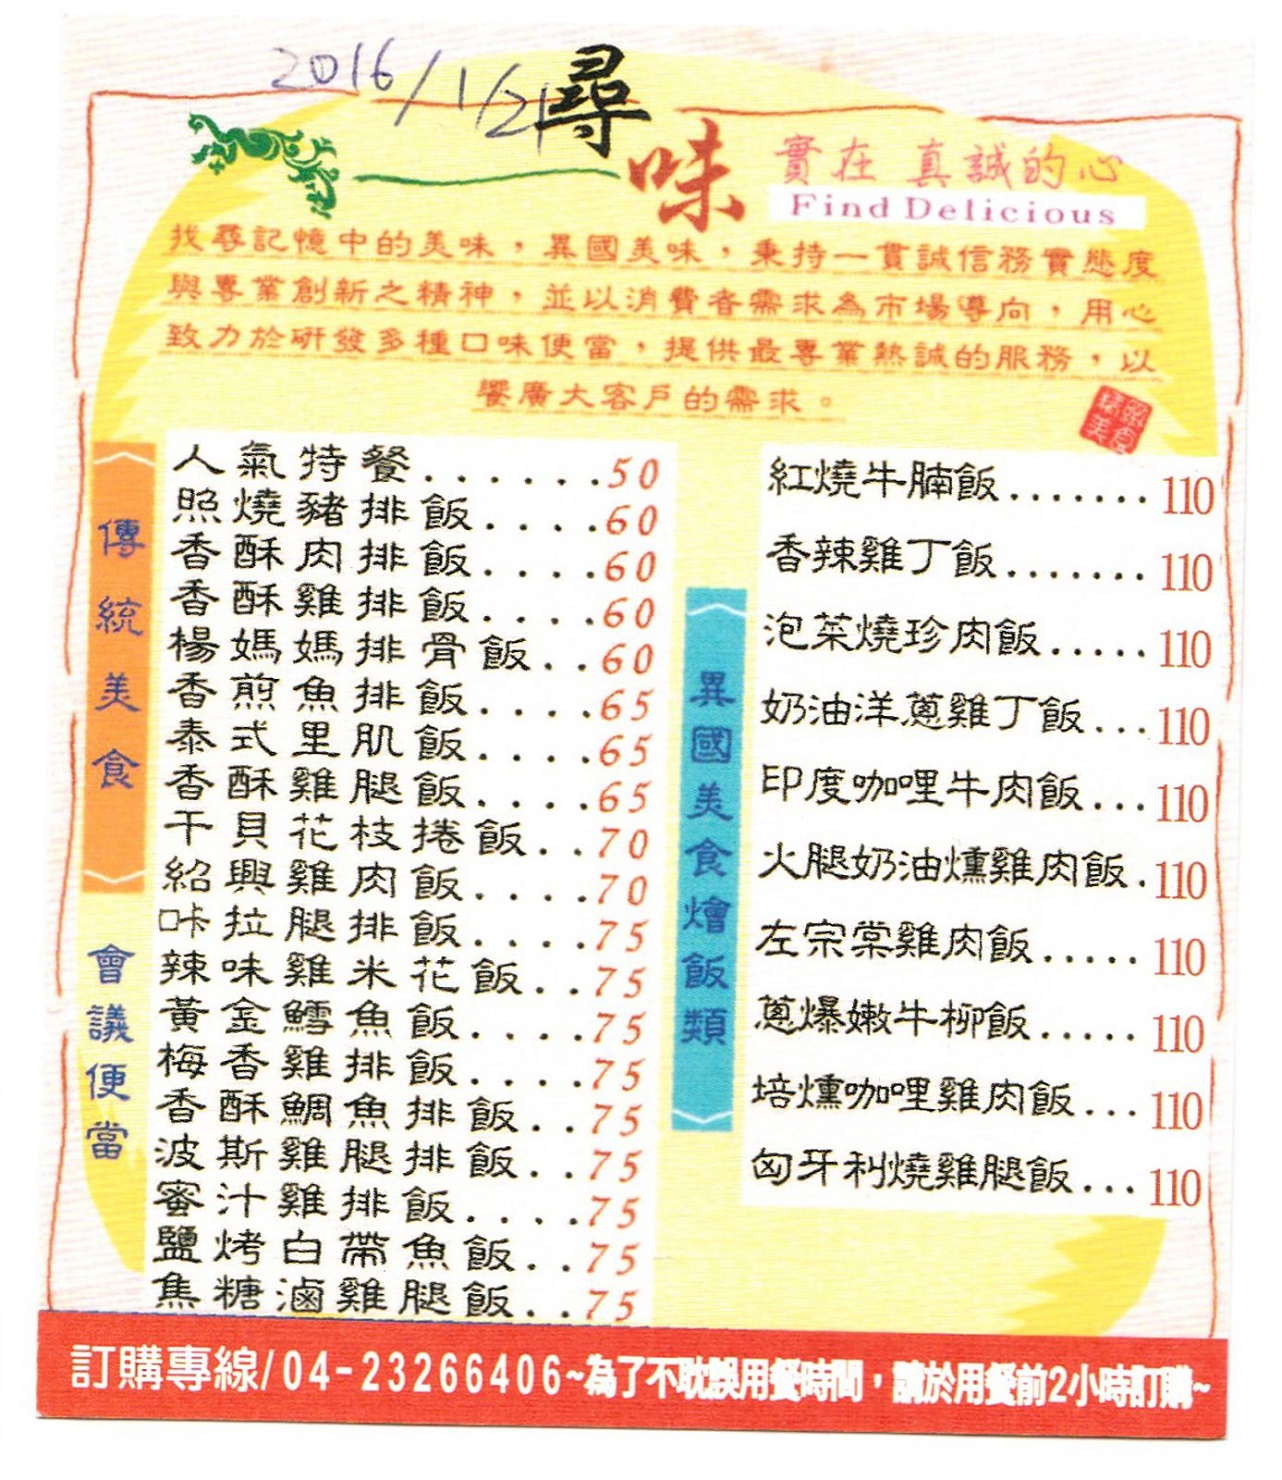 2016/1/21
尋味
實在 真誠的心
Find Delicious
找尋記憶中的美味，異國美味，秉持一貫誠信務實態度
與專業創新之精神，並以消費者需求為市場導向，用心
致力於研發多種口味便當，提供最專業熱誠的服務，以
饗廣大客戶的需求。
傳統美食
會議便當
人氣特餐.......50
照燒豬排飯.....60
香酥肉排飯.....60
香酥雞排飯.....60
楊媽媽排骨飯..60
香煎魚排飯.....65
泰式里肌飯.....65
香酥雞腿飯.....65
干貝花枝捲飯..70
紹興雞肉飯.....70
咔拉腿排飯.....75
辣味雞米花飯..75
黃金鱈魚飯.....75
梅香雞排飯.....75
香酥鯛魚排飯..75
波斯雞腿排飯..75
蜜汁雞排飯.....75
鹽烤白帶魚飯..75
焦糖滷雞腿飯..75
異國美食燴飯類
紅燒牛腩飯.......110
香辣雞丁飯.......110
泡菜燒珍肉飯.....110
奶油洋蔥雞丁飯...110
印度咖哩牛肉飯...110
火腿奶油燻雞肉飯.110
左宗棠雞肉飯.....110
蔥爆嫩牛柳飯.....110
培燻咖哩雞肉飯...110
匈牙利燒雞腿飯...110
訂購專線/04-23266406~為了不耽誤用餐時間，請於用餐前2小時訂購~